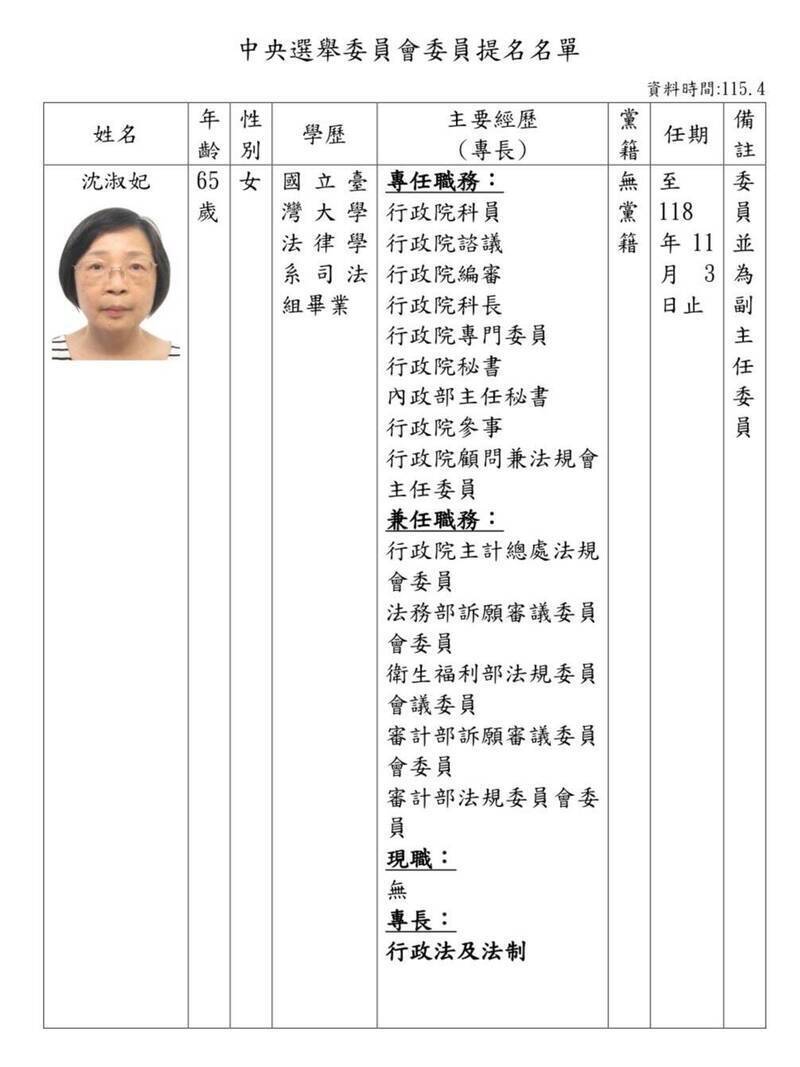 中央選舉委員會委員提名名單
資料時間:115.4
姓名
年齡
性別
學歷
主要經歷
（專長）
黨籍
任期
備註
沈淑妃
65
歲
女
國立臺
灣大學
法律學
系司法
組畢業
專任職務：
行政院科員
行政院諮議
行政院編審
行政院科長
行政院專門委員
行政院秘書
內政部主任秘書
行政院參事
行政院顧問兼法規會
主任委員
兼任職務：
行政院主計總處法規
會委員
法務部訴願審議委員
會委員
衛生福利部法規委員
會議委員
審計部訴願審議委員
會委員
審計部法規委員會委
員
現職：
無
專長：
行政法及法制
無黨籍
至
118
年 11
月 3
日止
委員並為副主任委員